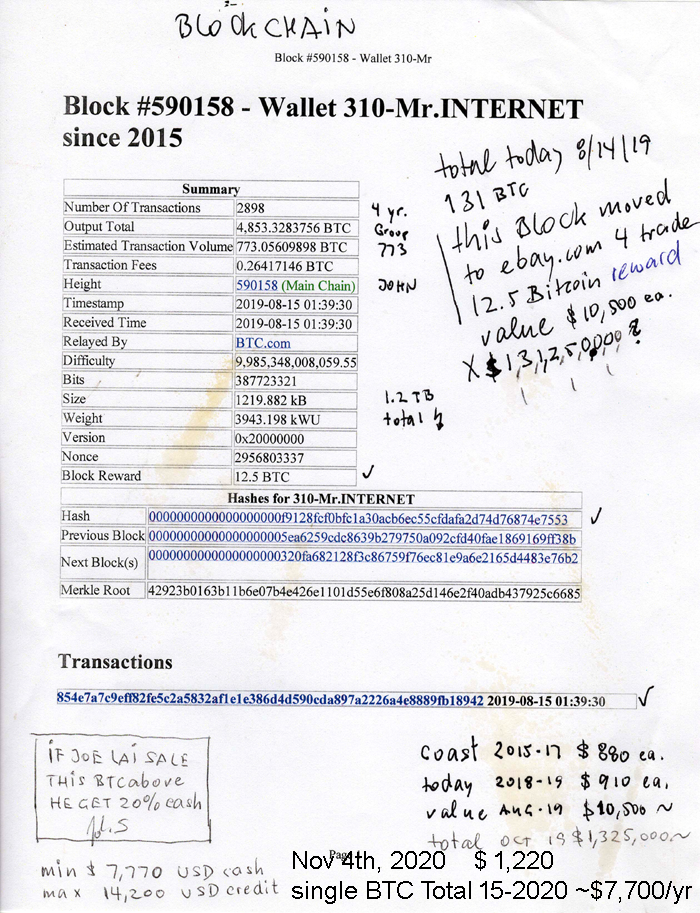 BLOCKCHAIN
Block #590158 - Wallet 310-Mr
Block #590158 - Wallet 310-Mr.INTERNET
since 2015
total today 8/14/19
131 BTC
this Block moved
to ebay.com 4 trade
12.5 Bitcoin reward
value $10,500 ea.
Summary
Number Of Transactions 2898
Output Total 4,853.3283756 BTC
Estimated Transaction Volume 773.05609898 BTC
Transaction Fees 0.26417146 BTC
Height 590158 (Main Chain)
Timestamp 2019-08-15 01:39:30
Received Time 2019-08-15 01:39:30
Relayed By BTC.com
Difficulty 9,985,348,008,059.55
Bits 387723321
Size 1219.882 kB
Weight 3943.198 kWU
Version 0x20000000
Nonce 2956803337
Block Reward 12.5 BTC
4 yr.
Group
773
JOHN
1.2 TB
total
Hashes for 310-Mr.INTERNET
Hash 0000000000000000000f9128fcf0bfc1a30acb6ec55cfdafa2d74d76874e7553
Previous Block 00000000000000000005ea6259cdc8639b279750a092cfd40fae1869169ff38b
Next Block(s) 0000000000000000000320fa682128f3c86759f76ec81e9a6e2165d4483e76b2
Merkle Root 42923b0163b11b6e07b4e426e1101d55e6f808a25d146e2f40adb437925c6685
Transactions
854e7a7c9eff82fe5c2a5832af1e1e386d4d590cda897a2226a4e8889fb18942 2019-08-15 01:39:30
IF JOE LAI SALE
THIS BTC above
HE GET 20% cash
min $ 7,770 USD cash
max 14,200 USD credit
coast 2015-17 $ 880 ea.
today 2018-19 $ 910 ea.
value AUG-19 $10,500 ~
total OCT 19 $1,325,000~
Page
Nov 4th, 2020 $ 1,220
single BTC Total 15-2020 ~$7,700/yr